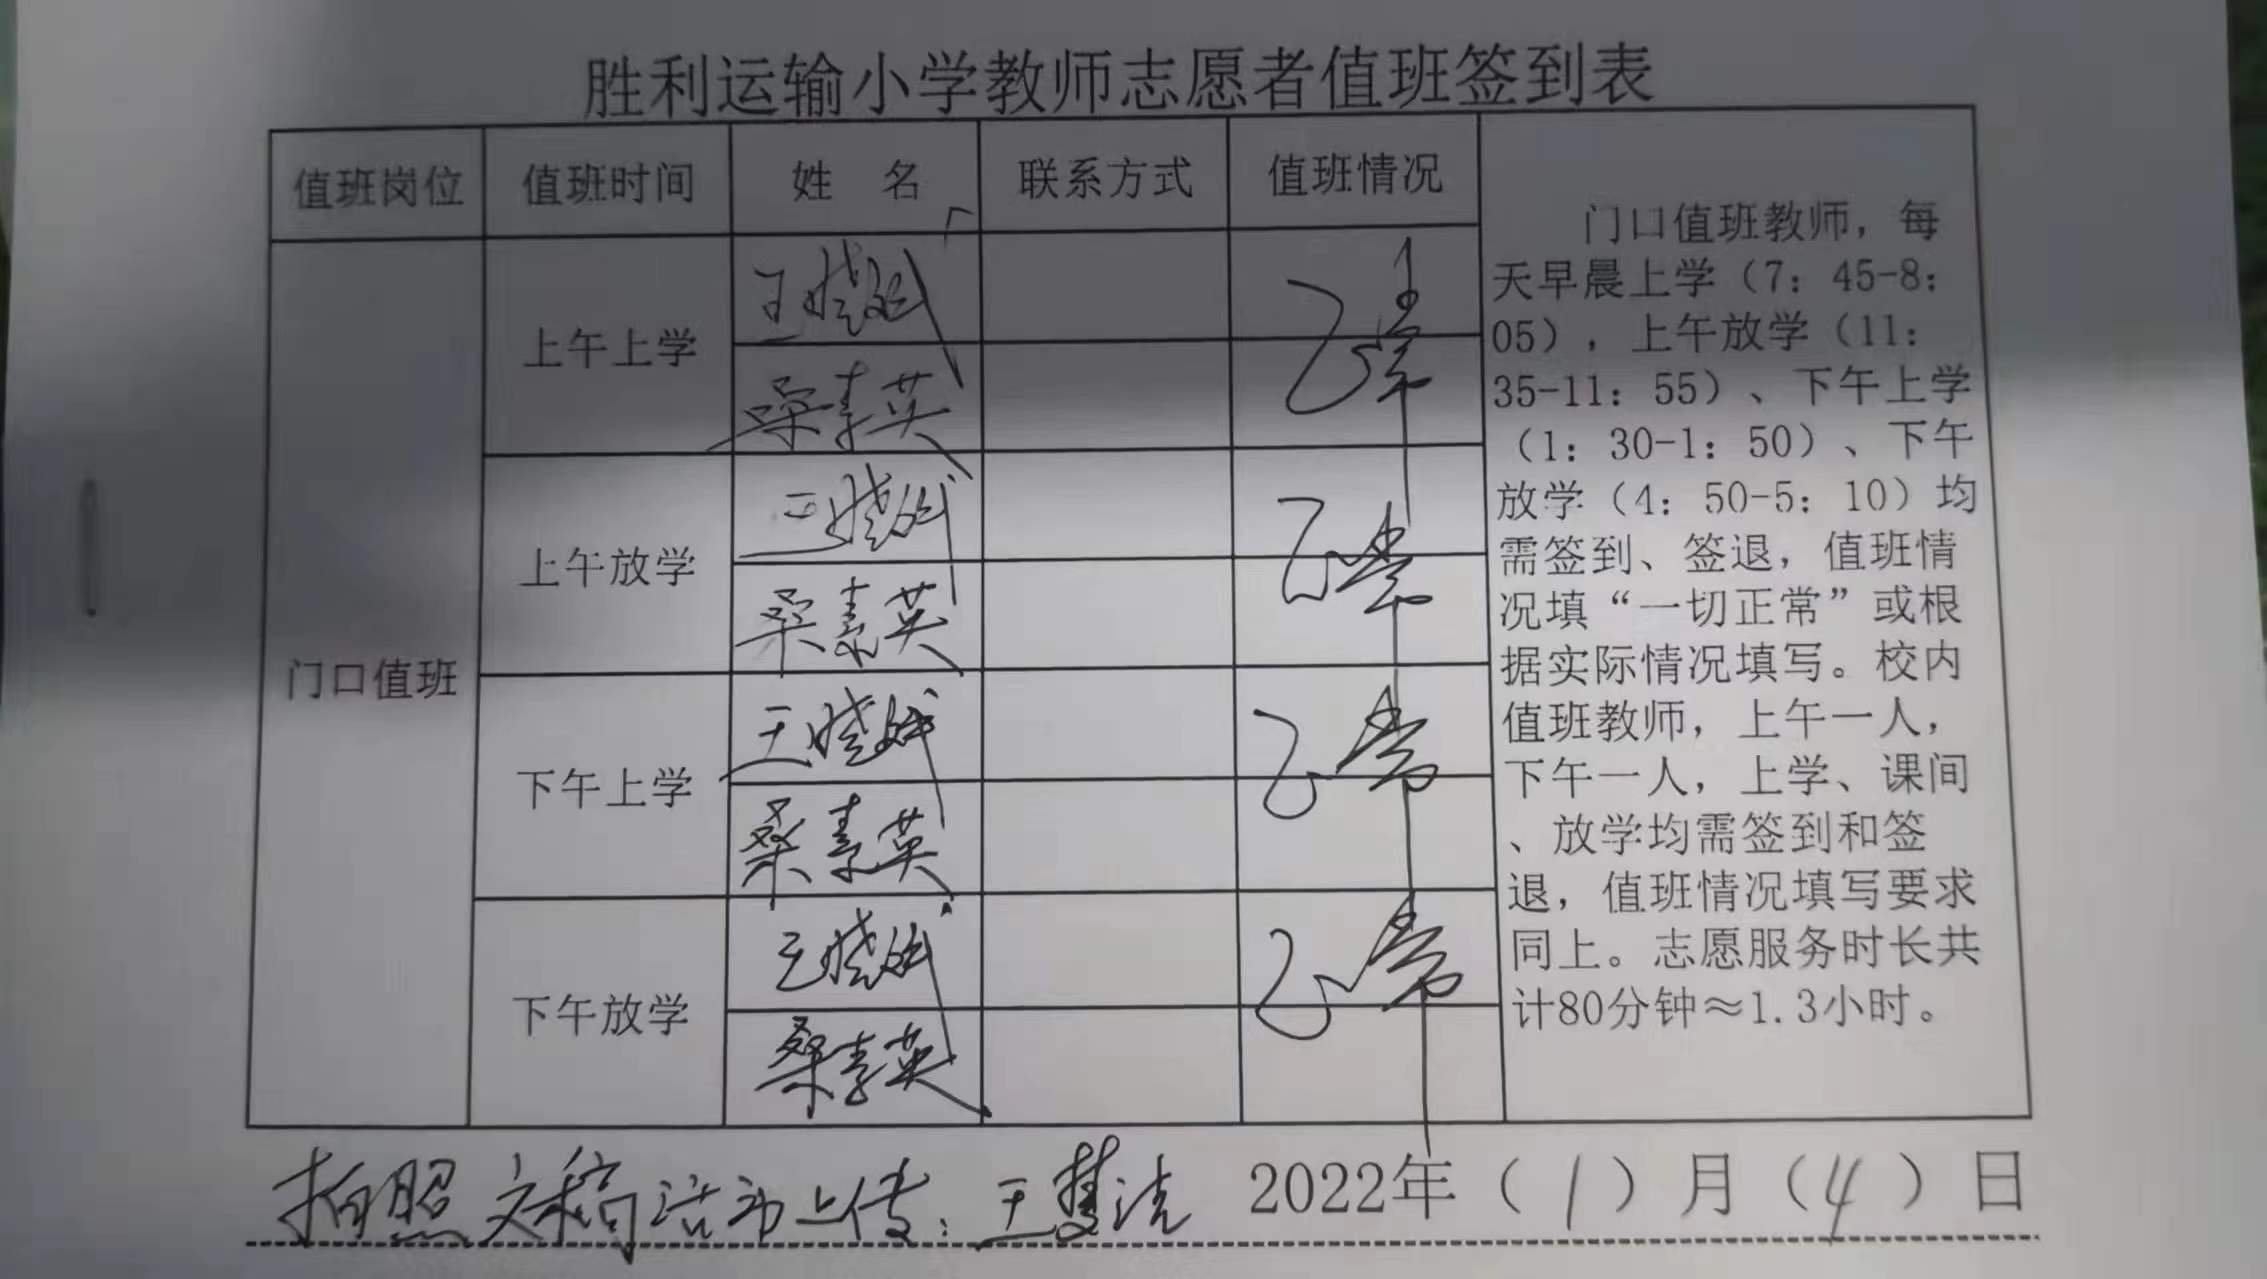 胜利运输小学教师志愿者值班签到表
值班岗位 值班时间 姓 名 联系方式 值班情况
门口值班
上午上学
桑素英
上午放学
桑素英
下午上学
桑素英
下午放学
桑素英
门口值班教师，每
天早晨上学（7：45-8：
05），上午放学（11：
35-11：55）、下午上学
（1：30-1：50）、下午
放学（4：50-5：10）均
需签到、签退，值班情
况填“一切正常”或根
据实际情况填写。校内
值班教师，上午一人，
下午一人，上学、课间
、放学均需签到和签
退，值班情况填写要求
同上。志愿服务时长共
计80分钟≈1.3小时。
拍照 文稿 活动上传：王慧洁 2022年（1）月（4）日